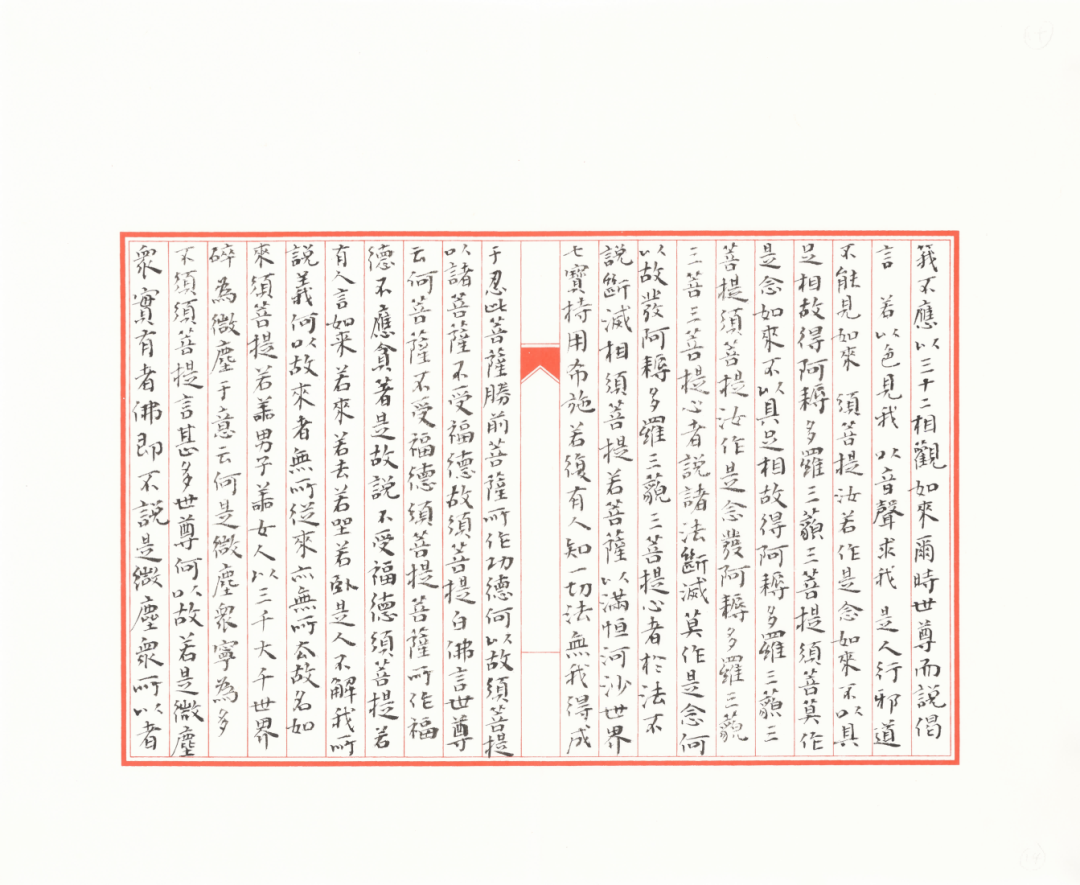 我不應以三十二相觀如來爾時世尊而說偈
言 若以色見我 以音聲求我 是人行邪道
不能見如來 須菩提汝若作是念如來不以具
足相故得阿耨多羅三藐三菩提須菩莫作
是念如來不以具足相故得阿耨多羅三藐三
菩提須菩提汝作是念發阿耨多羅三藐
三菩三菩提心者說諸法斷滅莫作是念何
以故發阿耨多羅三藐三菩提心者於法不
說斷滅相須菩提若菩薩以滿恒河沙世界
七寶持用布施若復有人知一切法無我得成
于忍此菩薩勝前菩薩所作功德何以故須菩提
以諸菩薩不受福德故須菩提白佛言世尊
云何菩薩不受福德須菩提菩薩所作福
德不應貪著是故說不受福德須菩提若
有人言如來若來若去若坐若臥是人不解我所
說義何以故來者無所從來亦無所去故名如
來須菩提若善男子善女人以三千大千世界
碎為微塵于意云何是微塵眾寧為多
不須須菩提言甚多世尊何以故若是微塵
眾實有者佛即不說是微塵眾所以者